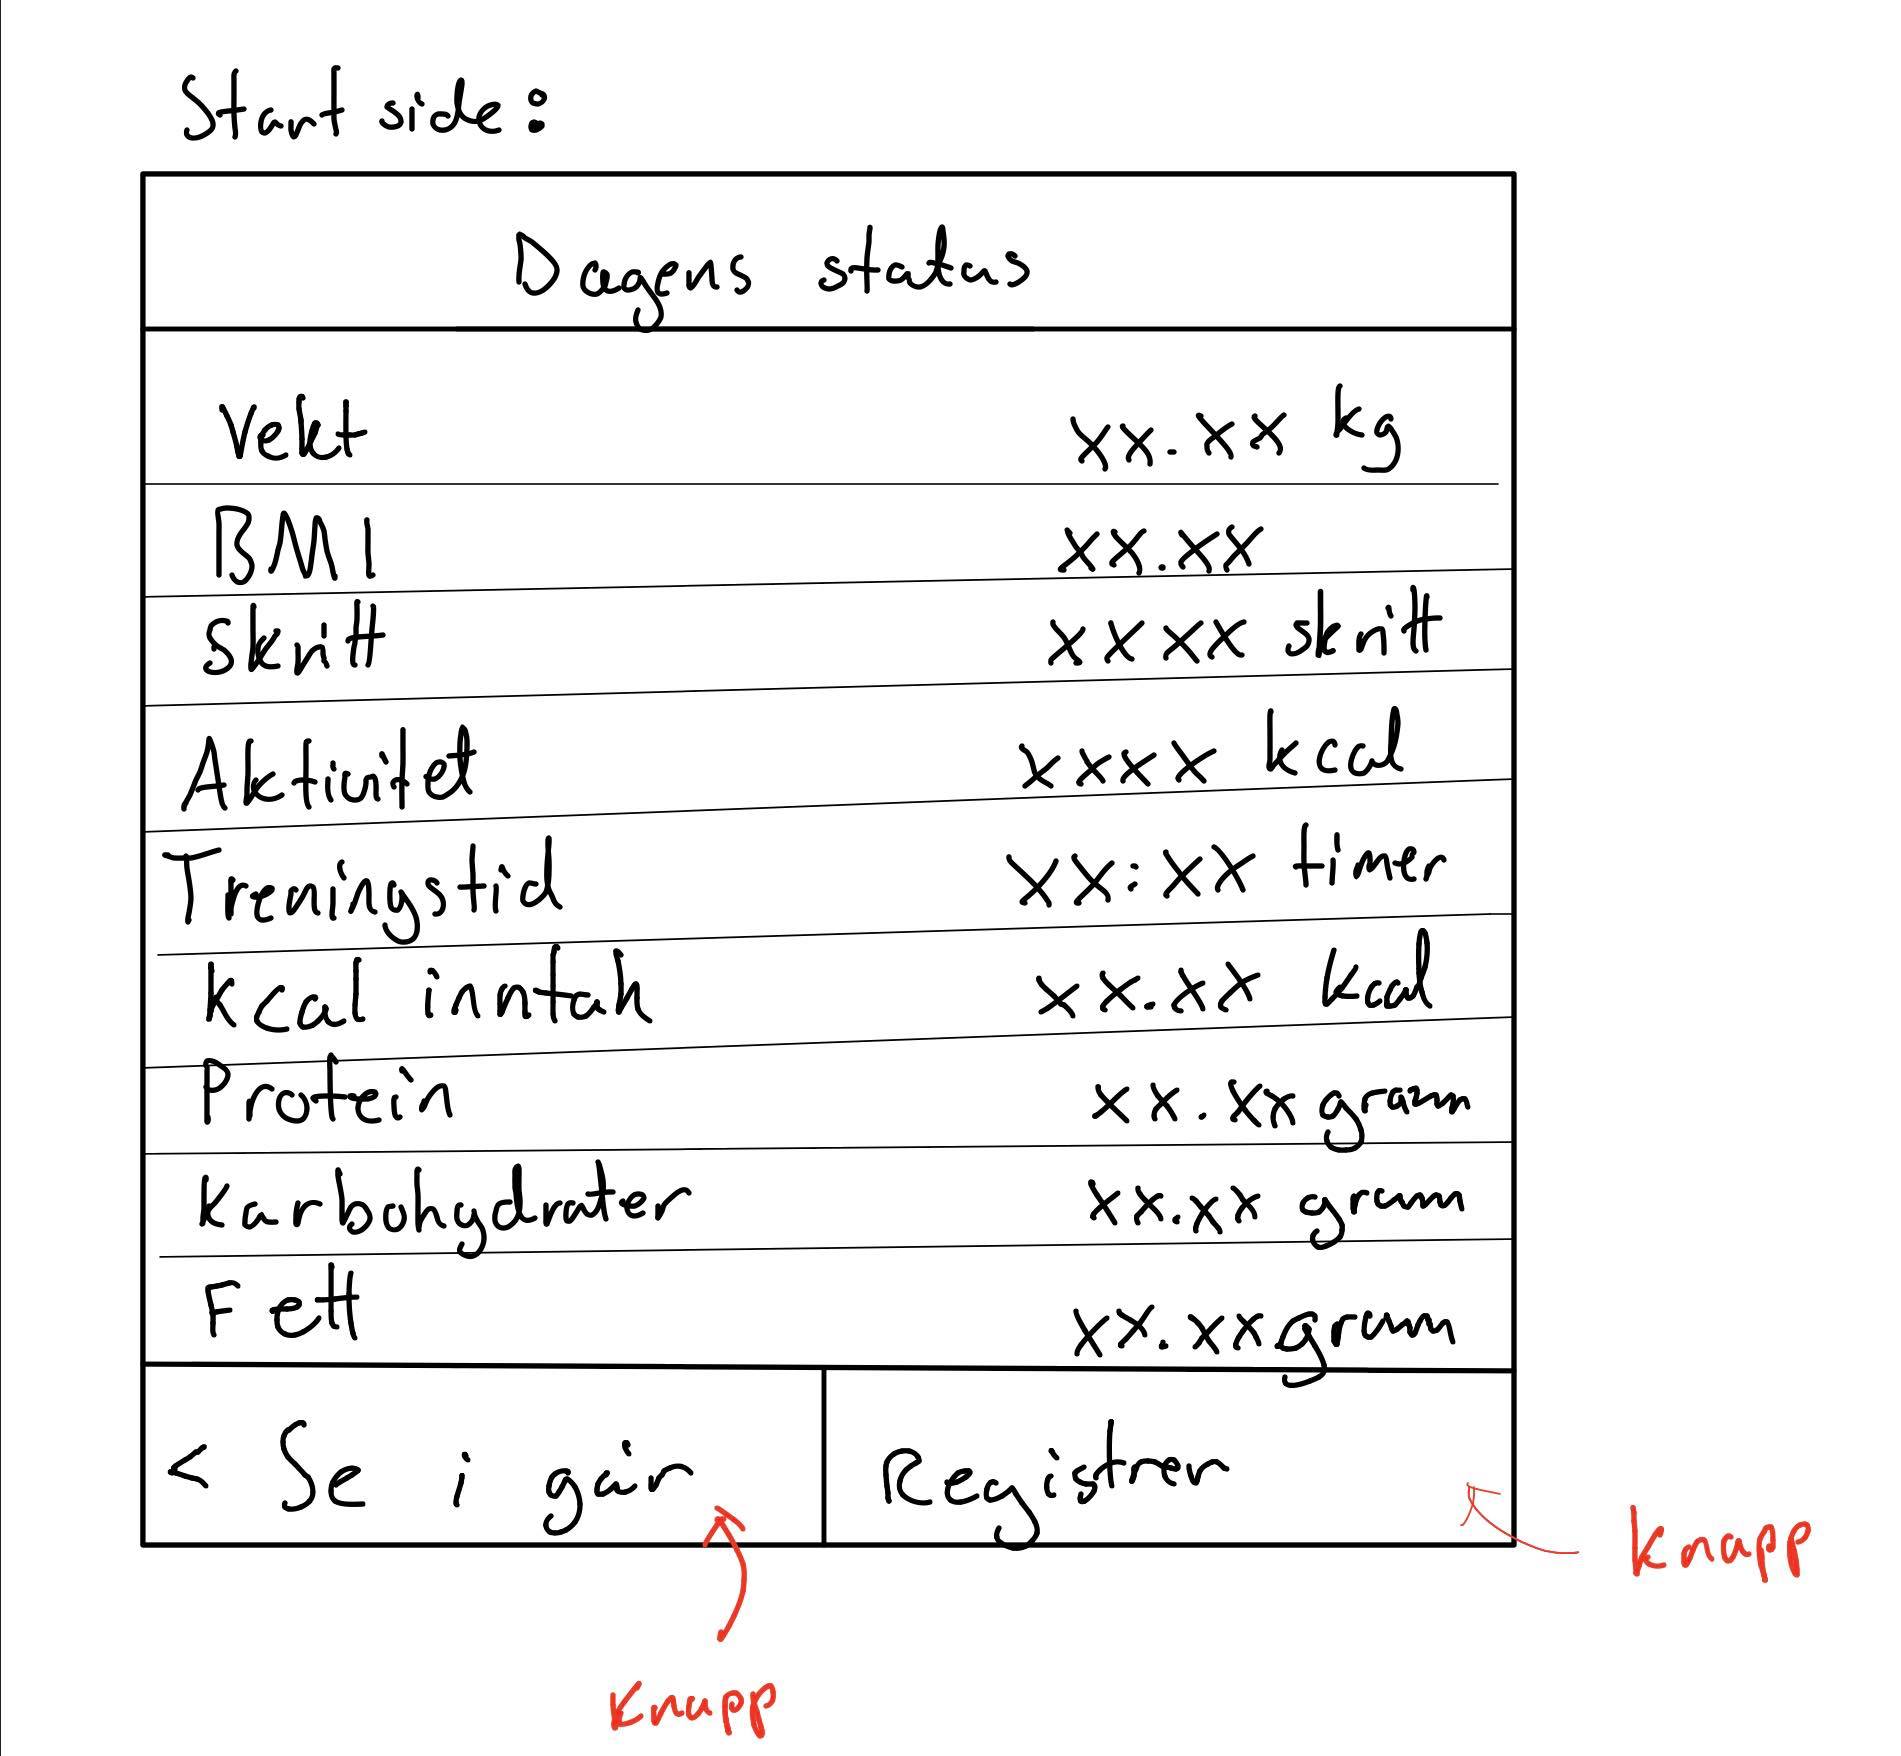 Start side:
Dagens status
Vekt xx.xx kg
BMI xx.xx
Skritt xxxx skritt
Aktivitet xxxx kcal
Treningstid xx:xx timer
Kcal inntak xx.xx kcal
Protein xx.xx gram
Karbohydrater xx.xx gram
Fett xx.xx gram
< Se i går Registrer
Knapp
Knapp